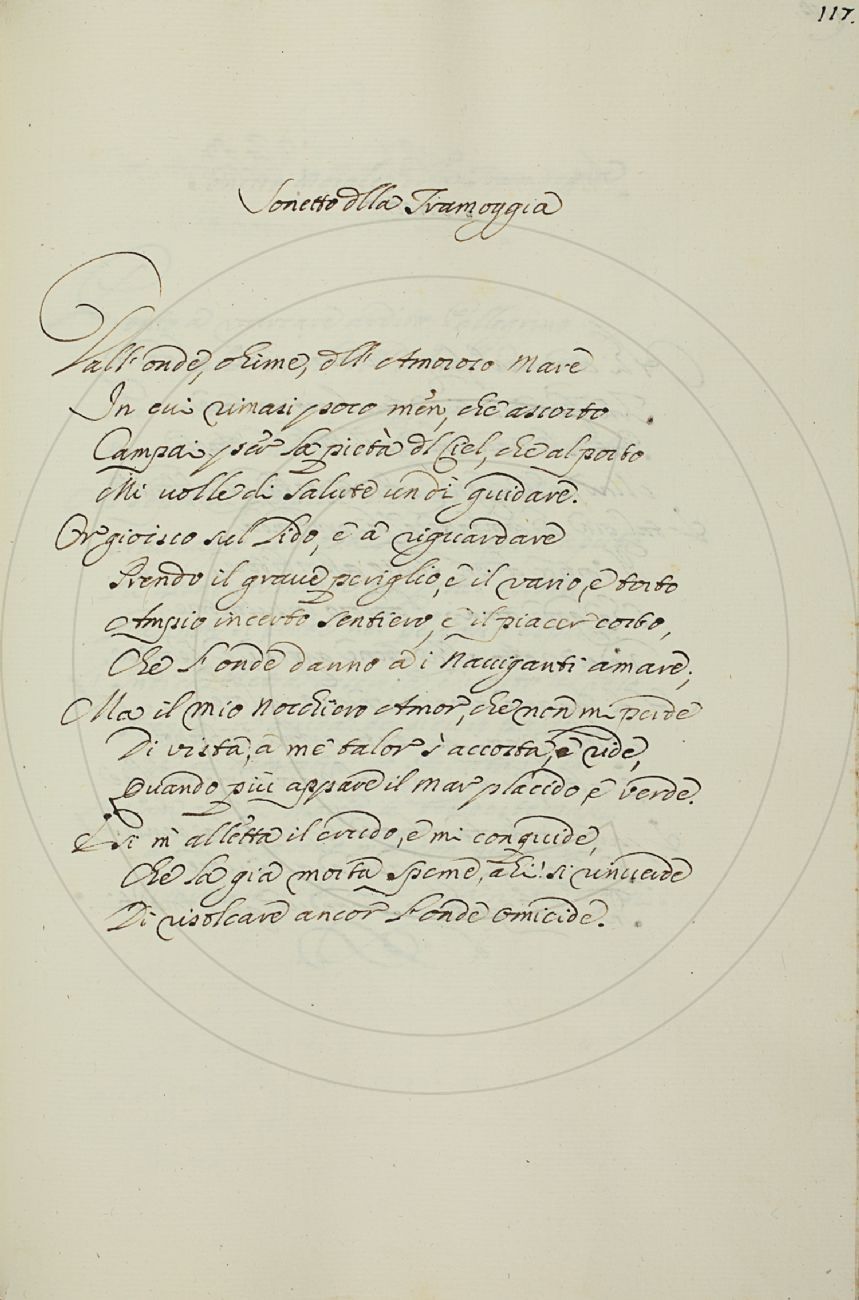 117.
Sonetto dlla Tramoggia
Dall'onde, ohime, dll'Amoroso Mare
In cui rimasi poco men, che assorto
Campai per la pietà dl Ciel, che al porto
Mi volle di salute un dì guidare.
Or gioisco sul Lido, e a riguardare
Prendo il grave periglio, e il vario, e torto
Ampio incerto sentiero, e il piacer corto,
Che l'onde danno a i Naviganti amare;
Ma il mio Nocchiero Amor, che non mi perde
Di vista, a me talor s'accosta, e ride,
Quando più appare il Mar placido, e verde.
E sì m'alletta il crudo, e mi conquide,
Che la già morta speme, ahi! si rinverde
Di risolcare ancor l'onde omicide.